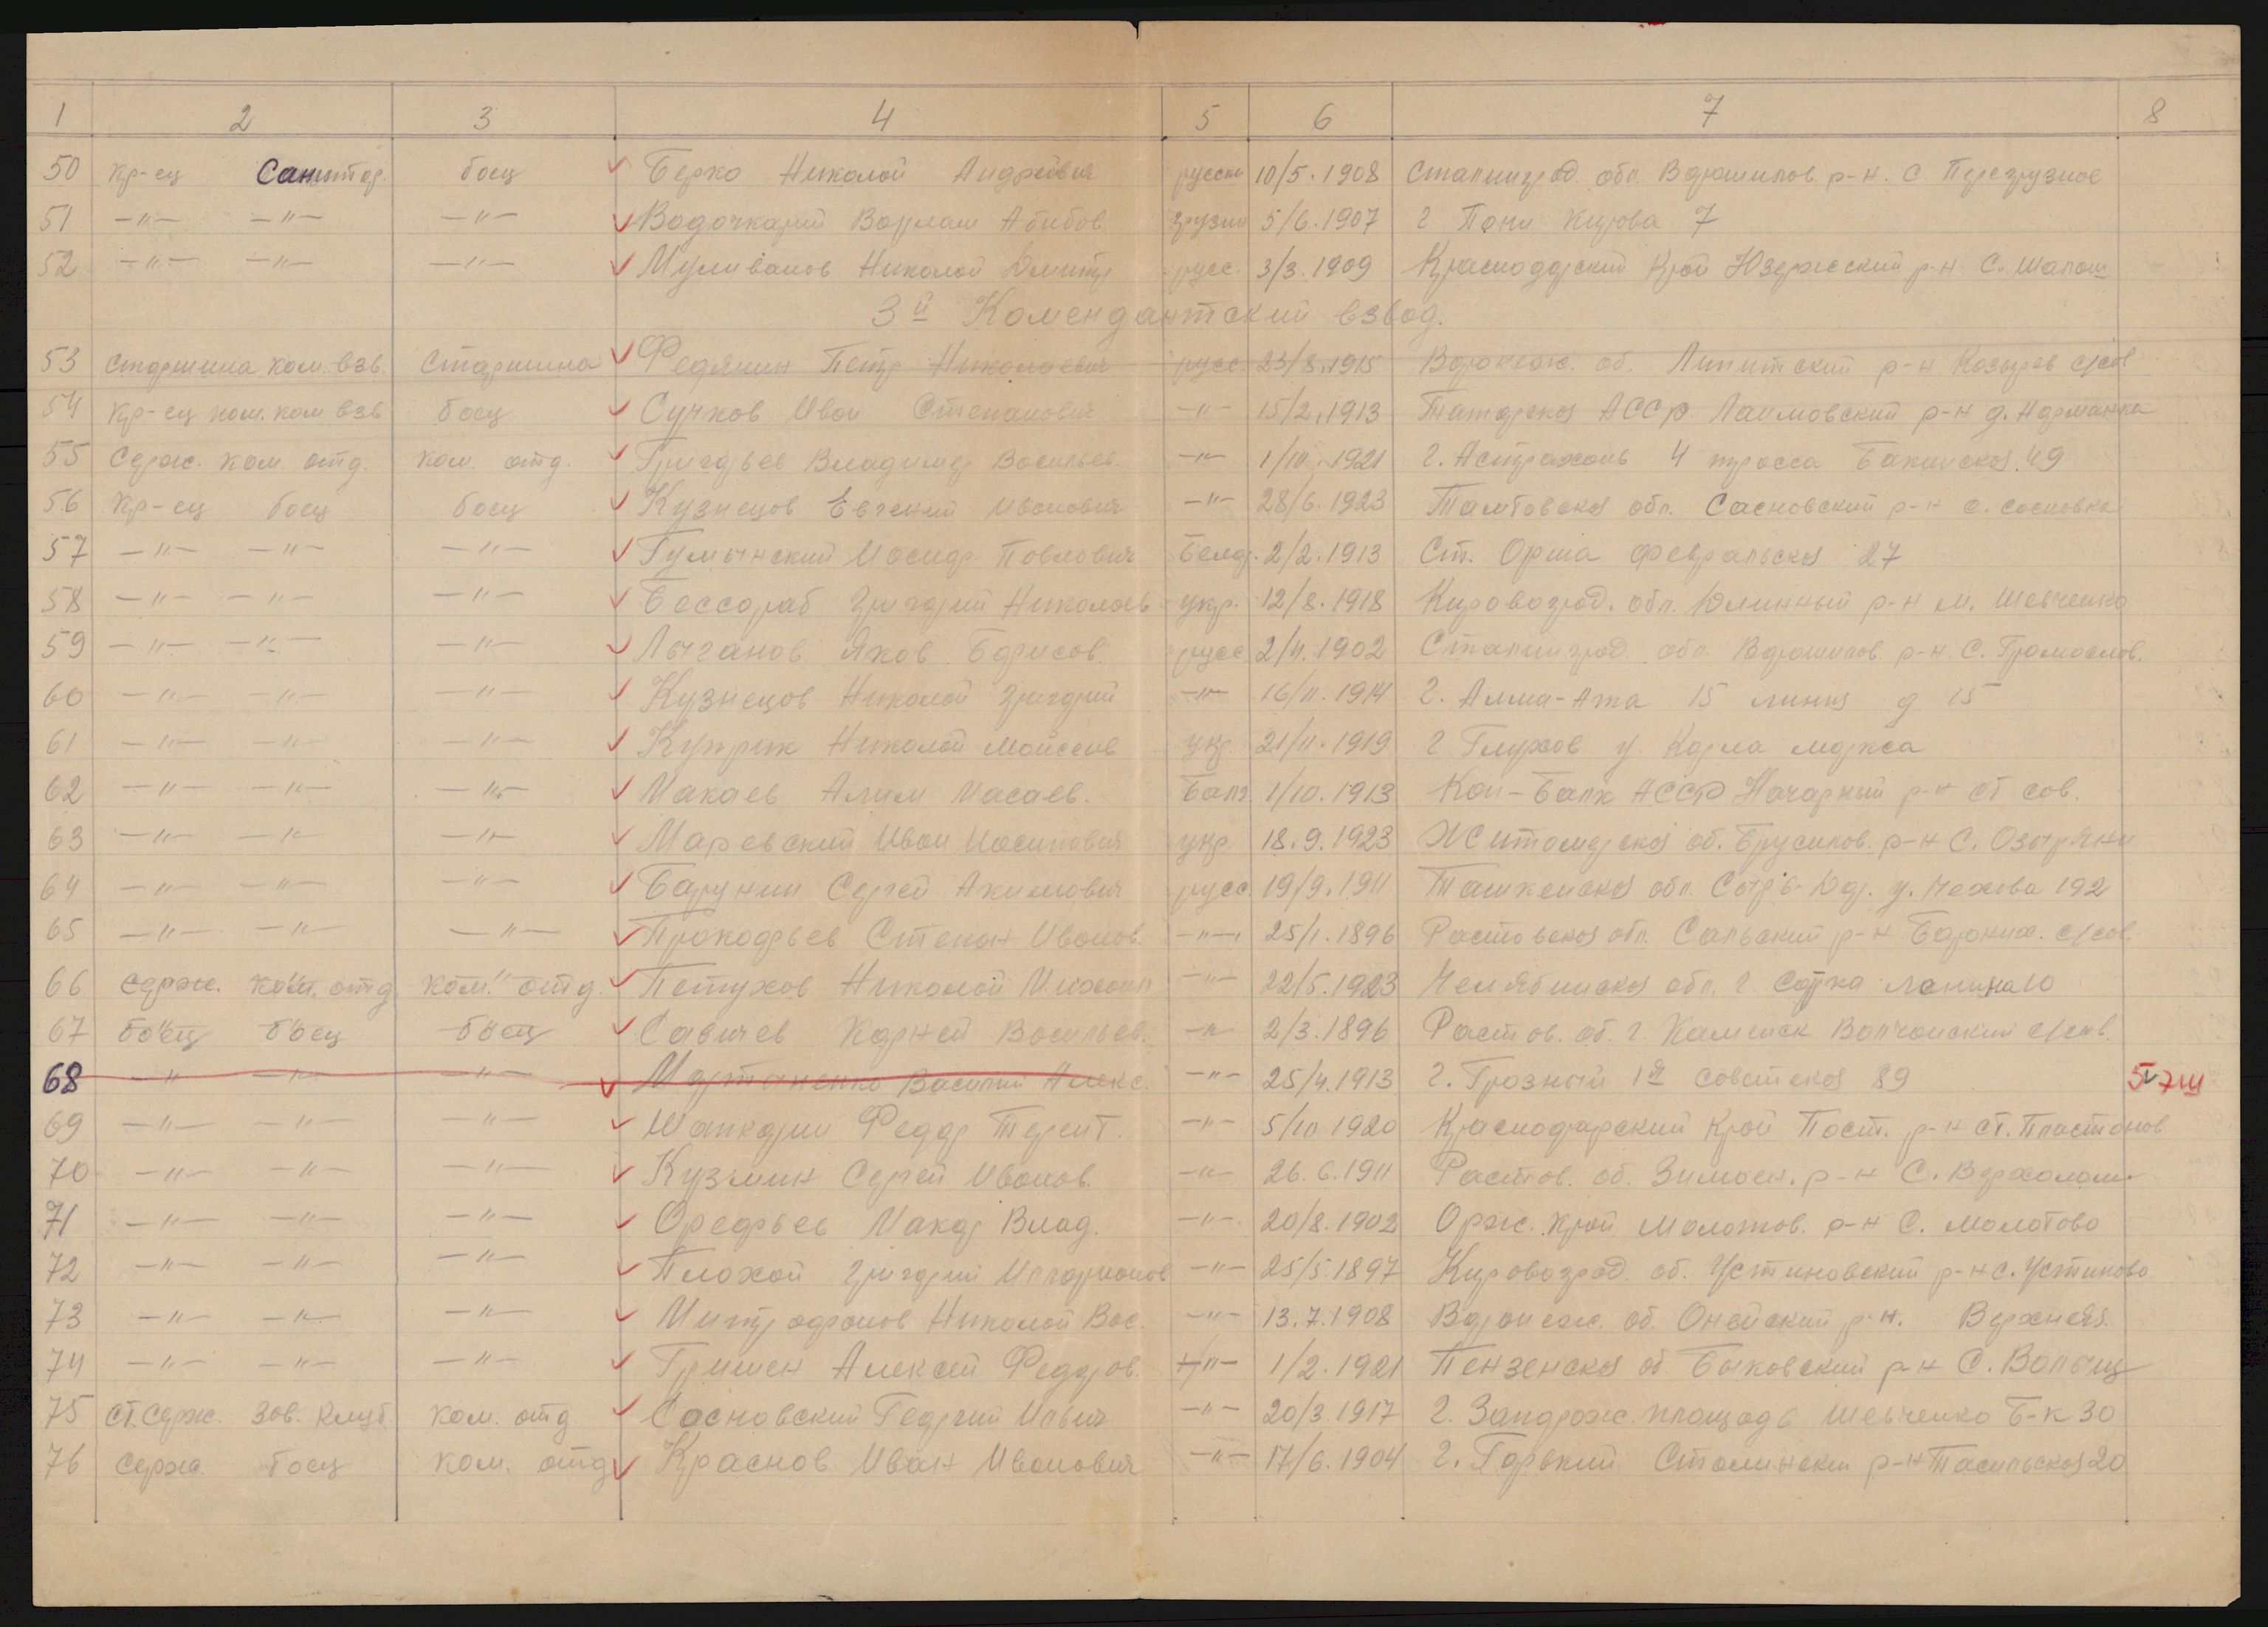 1 2 3 4 5 6 7 8
50 Кр-ец Санитар. боец Берко Николай Андреевич русск 10/5.1908 Сталинград. обл. Ворошилов. р-н. с Перегрузное
51 -"- -"- -"- Водочкарий Варлам Абибов. грузин 5/6.1907 г Поти Кирова 7
52 -"- -"- -"- Муливанов Николай Дмитр русс. 3/3.1909 Краснодарский край р-н С.
3й Комендантский взвод.
53 Старшина ком. взв. Старшина Федянин Петр Николаевич русс. 23/8.1915 Воронеж. об. Липитский р-н Козырев с/сов
54 Кр-ец пом. ком взв боец Сучков Иван Степанович -"- 15/2.1913 Татарская АССР Лаимовский р-н д. Нармонка
55 Серж. ком. отд. ком. отд. Григорьев Владимир Васильев. -"- 1/10.1921 г. Астрахань 4 трасса Бакинская. 49
56 Кр-ец боец боец Кузнецов Евгений Иванович -"- 28/6.1923 Тамбовская обл. Сасновский р-н с. Сосновка
57 -"- -"- -"- Гумынский Иосиф Павлович Белор. 2/2.1913 Ст. Орша Февральская 27
58 -"- -"- -"- Бессораб Григорий Николаев укр. 12/8.1918 Кировоград. обл. р-н м. Шевченко
59 -"- -"- -"- Лыганов Яков Борисов. русс. 2/4.1902 Сталинград обл. Ворошилов р-н С. Громослов.
60 -"- -"- -"- Кузнецов Николай Григорий -"- 16/11.1914 г. Алма-Ата 15 линия д 15
61 -"- -"- -"- Куприк Николай Моисеев укр 21/11.1919 г Глухов у. Карла маркса
62 -"- -"- -"- Макаев Алим Масаев. Балк. 1/10.1913 Каб-Балк АССР Начарный р-н ст сов.
63 -"- -"- -"- Маревский Иван Иосипович укр 18.9.1923 Житомирская об. Брусилов. р-н С. Озыряни
64 -"- -"- -"- Барунин Сергей Акимович русс. 19/9.1911 Ташкенская обл. Сыр-Дар. у. Чехова 192
65 -"- -"- -"- Прокофьев Степан Иванов. -"- 25/1.1896 Растовская обл. Сальский р-н Баранник. с/сов.
66 Серж. ком. отд. ком. отд. Петухов Николай Михаил -"- 22/5.1923 Челябинская обл. г Сатка Ленина 10
67 боец боец боец Савичев Карней Васильев. -"- 2/3.1896 Растов. об. г. Каменск Волченский с/сов.
68 -"- -"- -"- Мартыненко Василий Алекс. -"- 25/4.1913 г. Грозный 1я советская 89
69 -"- -"- -"- Шапкарин Федор Терент. -"- 5/10 1920 Краснодарский край Пост. р-н ст. Пластонов.
70 -"- -"- -"- Кузмин Сергей Иванов. -"- 26.6.1911 Растов. об. Зимовн. р-н С. Верхолом.
71 -"- -"- -"- Орефьев Макар Влад. -"- 20/8.1902 Орж. край Молотов. р-н С. Молотово
72 -"- -"- -"- Плохой Григорий Илларионов -"- 25/5.1897 Кировоград. об. Устиновский р-н с. Устиново
73 -"- -"- -"- Митрофанов Николай Вас. -"- 13.7.1908 Воронеж. об. р-н. Верхняя.
74 -"- -"- -"- Гришен Алексей Федоров. -"- 1/2.1921 Пензенская об Быковский р-н С.
75 ст. Серж. Зав. клуб. ком. отд Сосновский Георгий Ильич -"- 20/3 1917 г. Запорож. площадь Шевченко Б-к 30
76 Серж. боец ком. отд Краснов Иван Иванович -"- 17/6.1904 г. Горький Сталинский р-н Тагильская 20